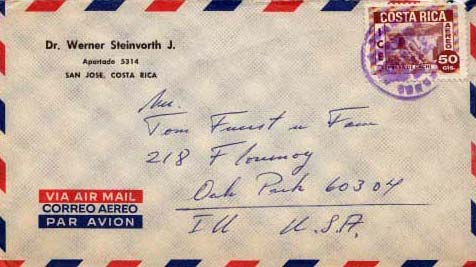 Dr. Werner Steinvorth J.
Apartado 5314
SAN JOSE, COSTA RICA
COSTA RICA
ICE
AEREO
50
cts.
Tom Fuerst u Fam
218 Flournoy
Oak Park 60304
Ill U.S.A.
VIA AIR MAIL
CORREO AEREO
PAR AVION